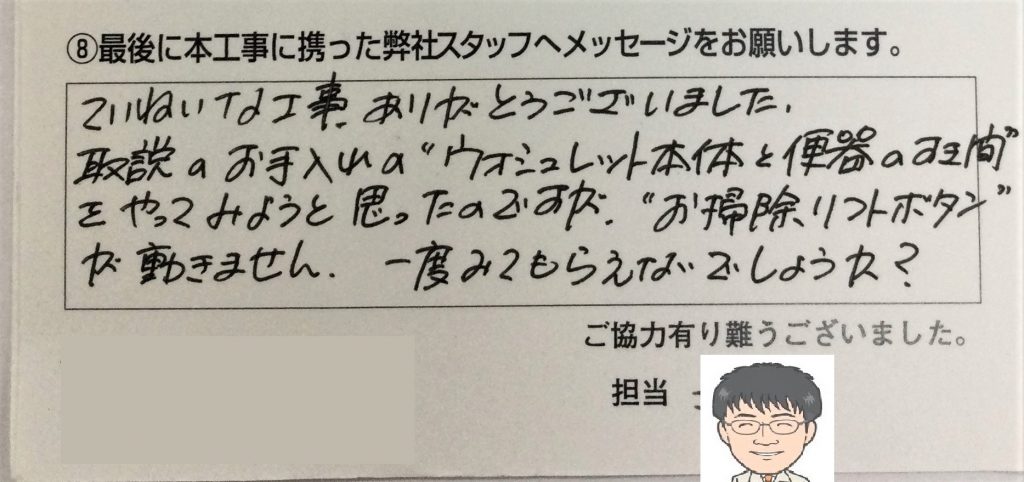 ⑧最後に本工事に携った弊社スタッフへメッセージをお願いします。
ていねいな工事、ありがとうございました。
取説のお手入れの“ウオシュレット本体と便器のすき間”
をやってみようと思ったのですが、“お掃除リフトボタン”
が動きません。一度みてもらえないでしょうか？
ご協力有り難うございました。
担当